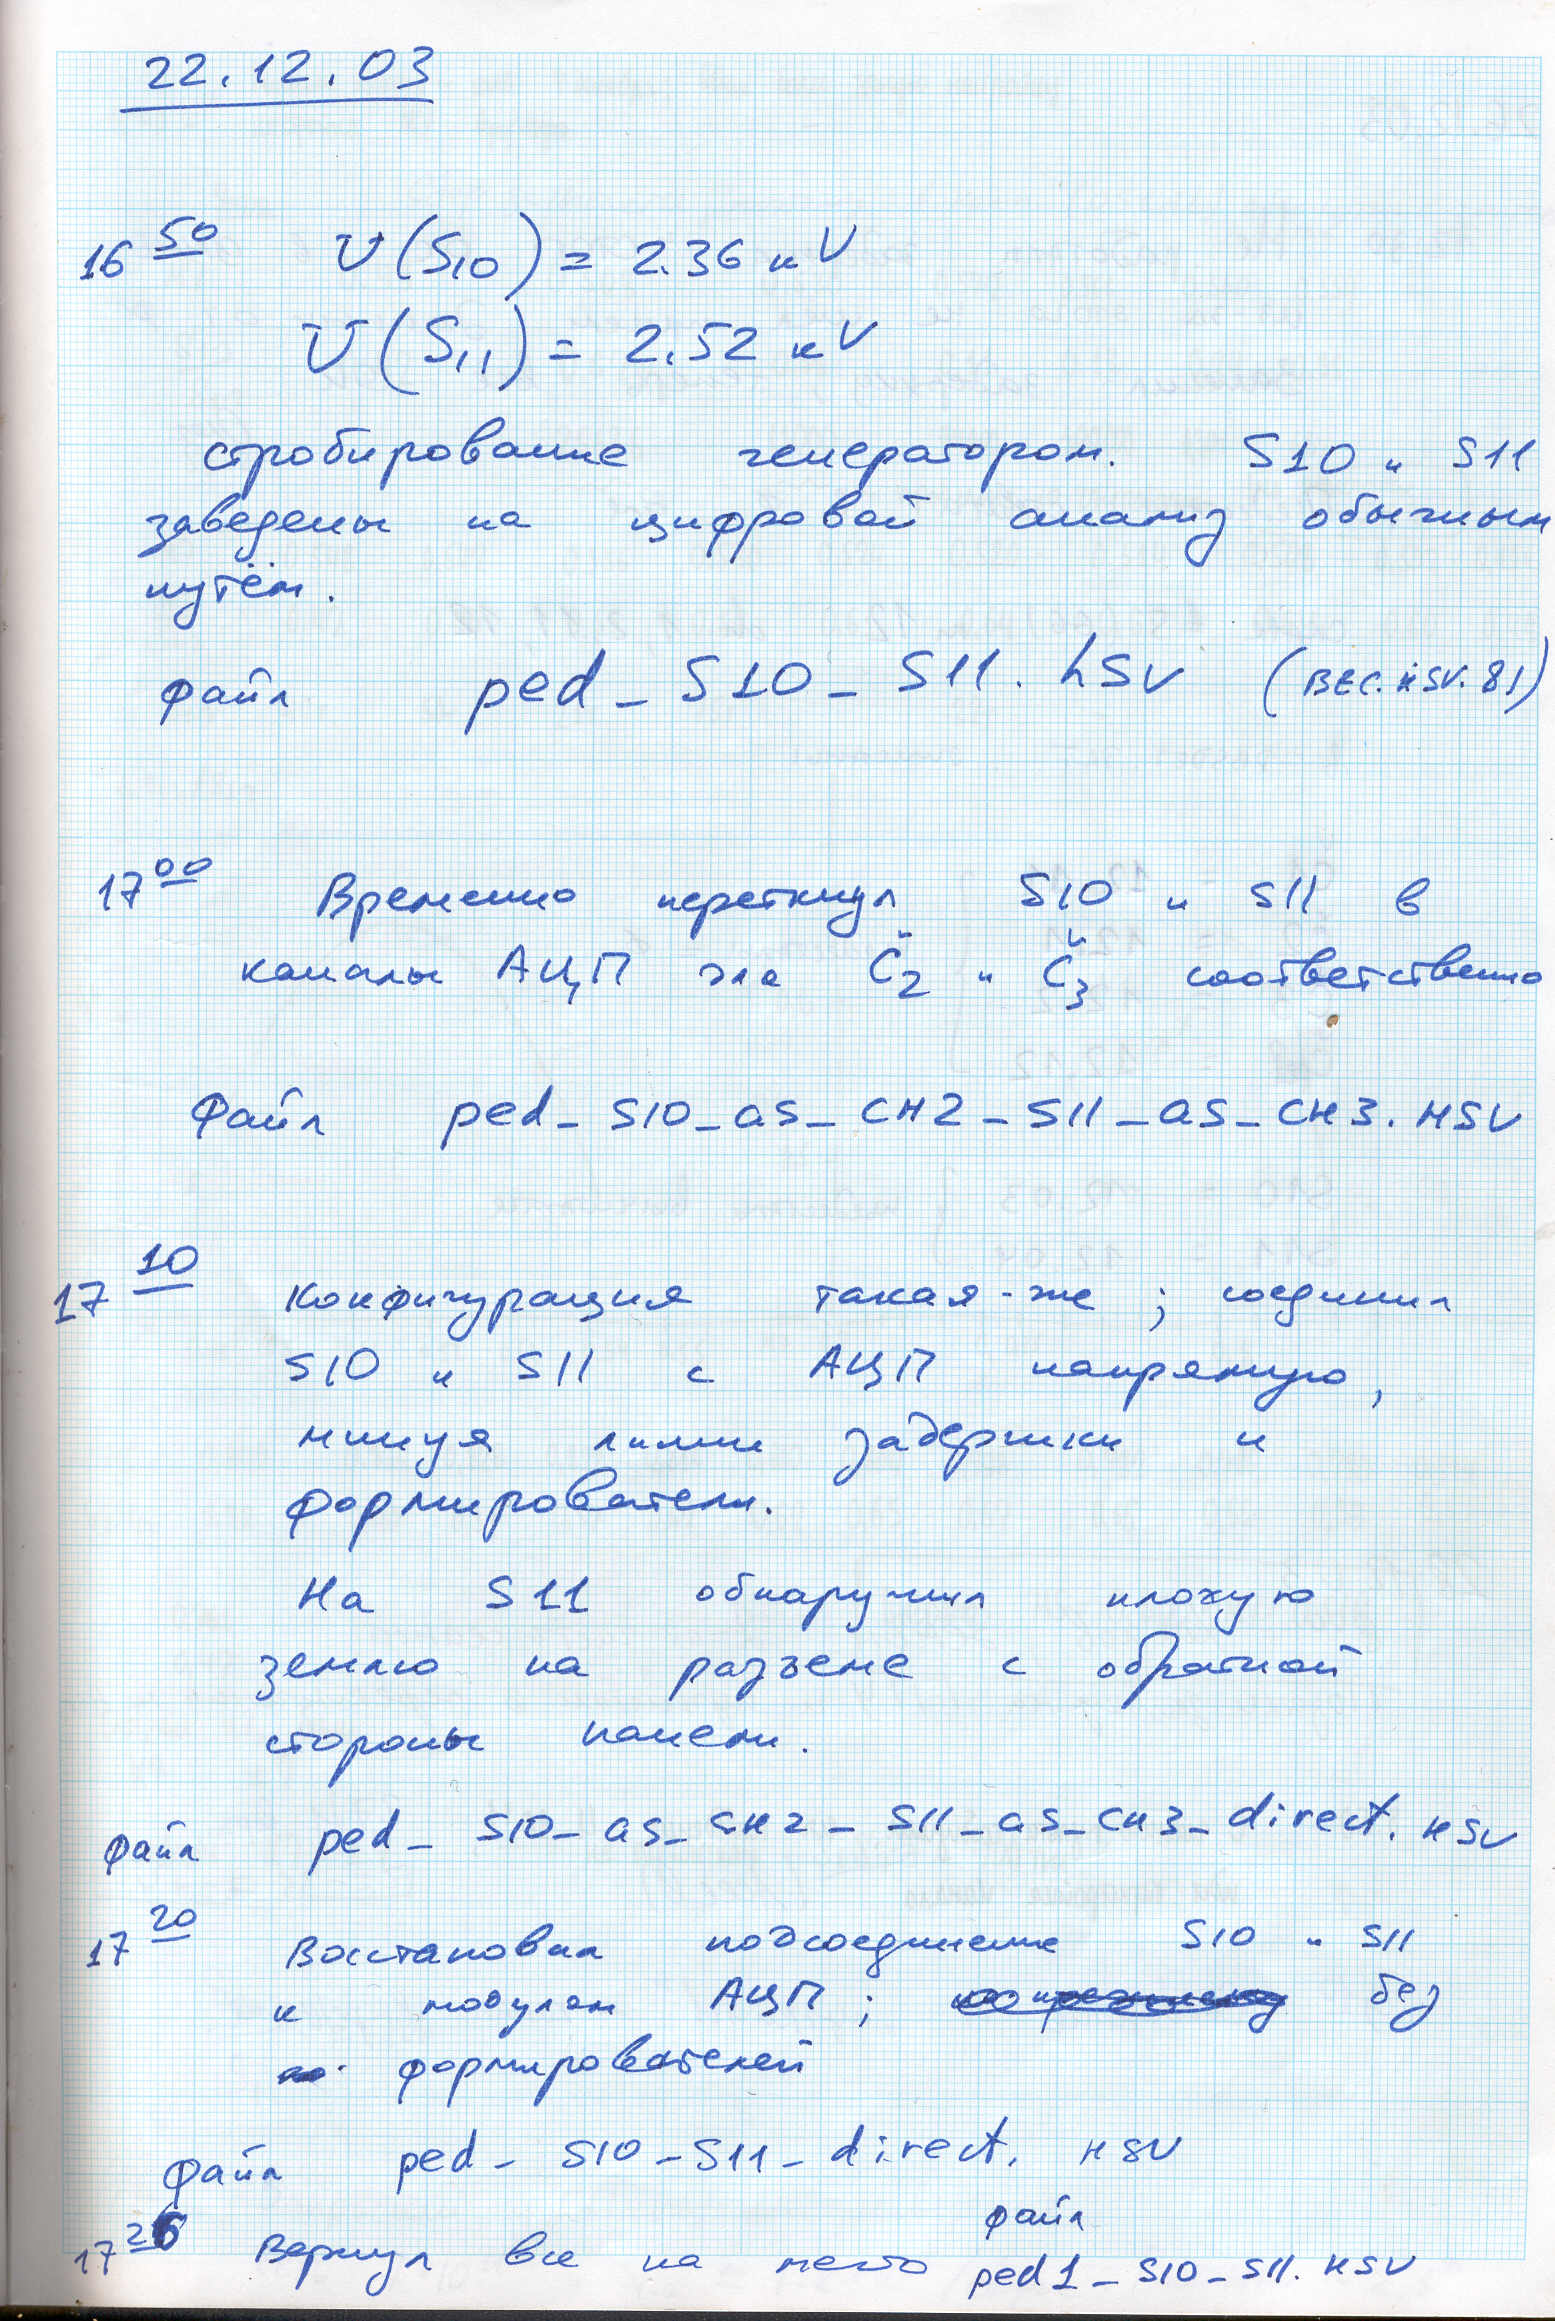 22.12.03
16 50 U(S10) = 2.36 кV
U(S11) = 2.52 кV
стробирование генератором. S10 и S11
заведены на цифровой анализ обычным
путём.
файл ped_S10_S11.hsv (BEC.HSV.81)
17 00 Временно переткнул S10 и S11 в
каналы АЦП для Č2 и Č3 соответственно
Файл ped_S10_as_CH2_S11_as_CH3.HSV
17 10 Конфигурация такая-же; соединил
S10 и S11 с АЦП напрямую,
минуя линии задержки и
формирователи.
На S11 обнаружил плохую
землю на разъеме с обратной
стороны панели.
файл ped_S10_as_CH2_S11_as_CH3_direct.HSV
17 20 Восстановил подсоединение S10 и S11
к модулям АЦП; без
формирователей
файл ped_S10_S11_direct.HSV
файл
17 26 Вернул все на место ped1_S10_S11.HSV